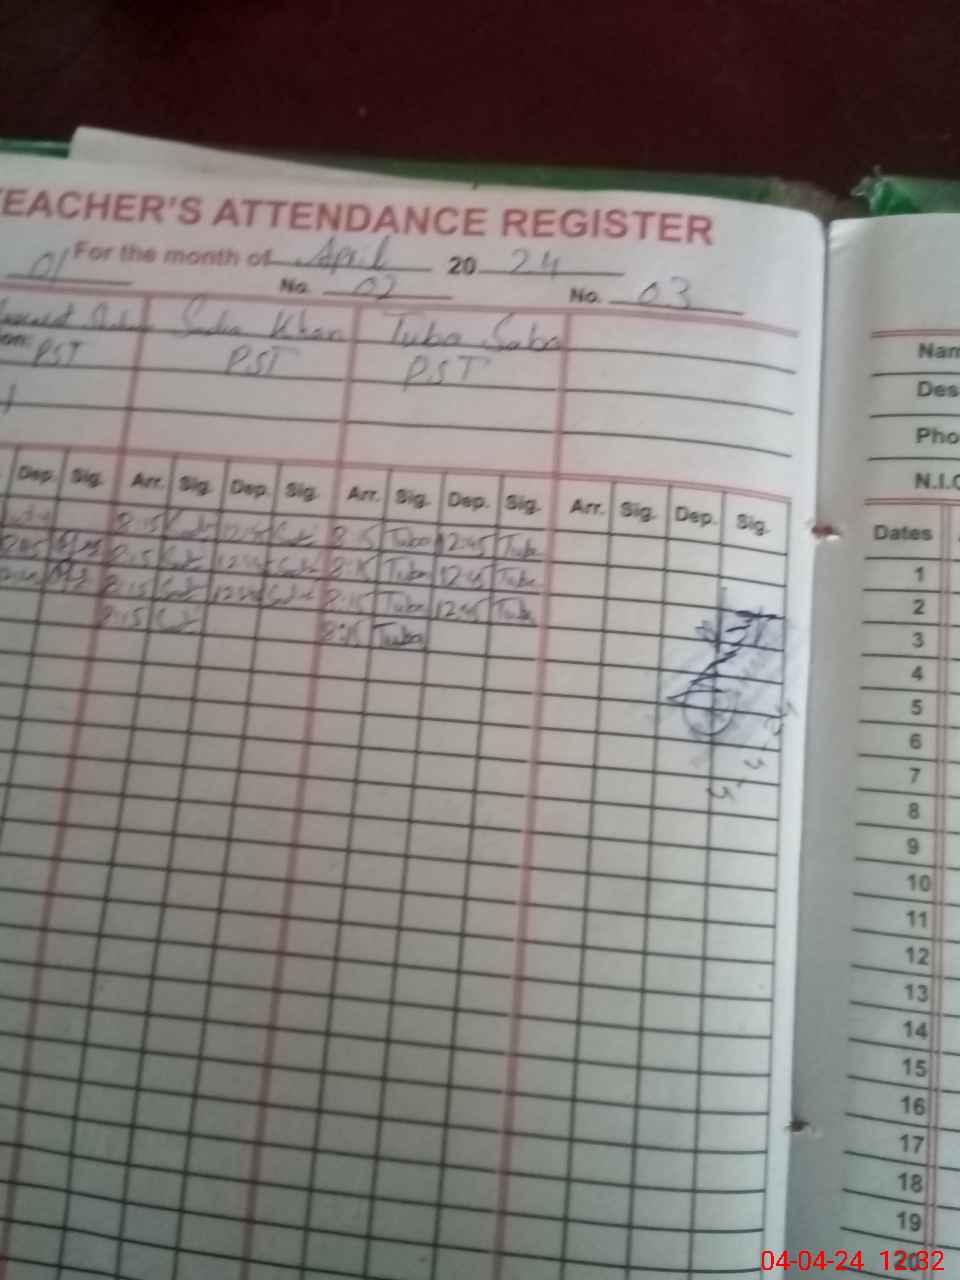 TEACHER'S ATTENDANCE REGISTER
For the month of April 2024
01 No. 02 No. 03
Sadia Khan Tuba Saba
PST PST PST
Dep. Sig. Arr. Sig. Dep. Sig. Arr. Sig. Dep. Sig. Arr. Sig. Dep. Sig.
8:15 12:45 8:15 Tuba 12:45 Tuba
8:15 12:45 8:15 Tuba 12:45 Tuba
8:15 12:45 8:15 Tuba 12:45 Tuba
8:15 8:15 Tuba
Nam
Des
Pho
N.I.C
Dates
1
2
3
4
5
6
7
8
9
10
11
12
13
14
15
16
17
18
19
20
04-04-24 12:32